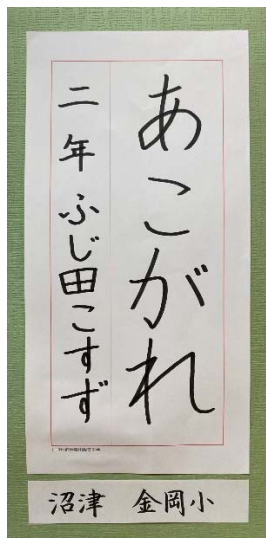 あこがれ
二年 ふじ田こすず
沼津 金岡小